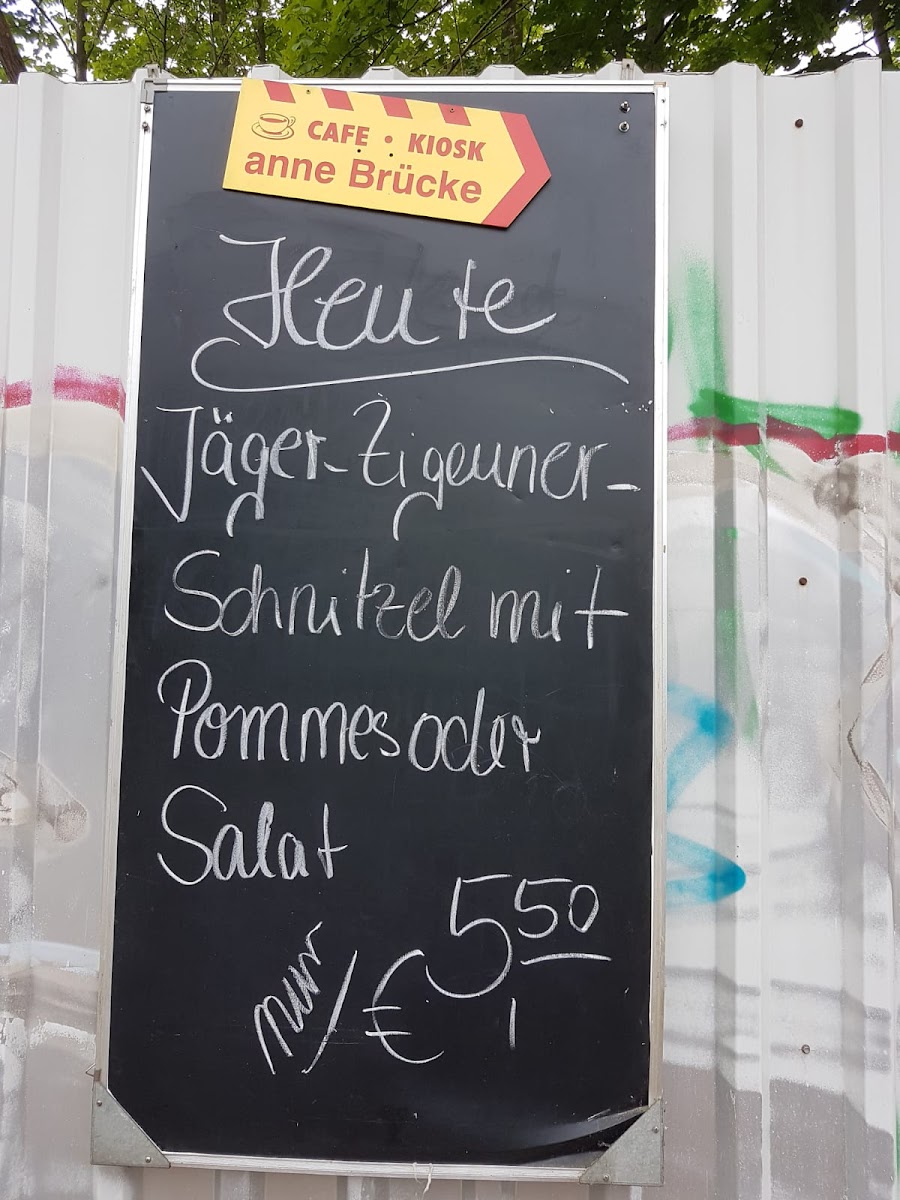 CAFE • KIOSK
anne Brücke
Heute
Jäger-Zigeuner-
Schnitzel mit
Pommes oder
Salat
nur/€ 5,50